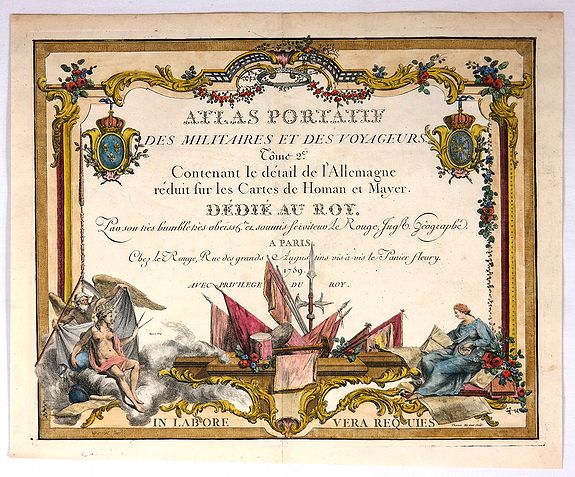 ATLAS PORTATIF
DES MILITAIRES ET DES VOYAGEURS.
Tome 2e.
Contenant le détail de l'Allemagne
réduit sur les Cartes de Homan et Mayer.
DÉDIÉ AU ROY.
Par son très humble très obeiss.t et soumis serviteur le Rouge, Ing.r Géographe.
A PARIS.
Chez le Rouge, Rue des grands Augustins vis à vis le Panier fleury.
1759.
AVEC PRIVILEGE DU ROY.
IN LABORE VERA REQUIES